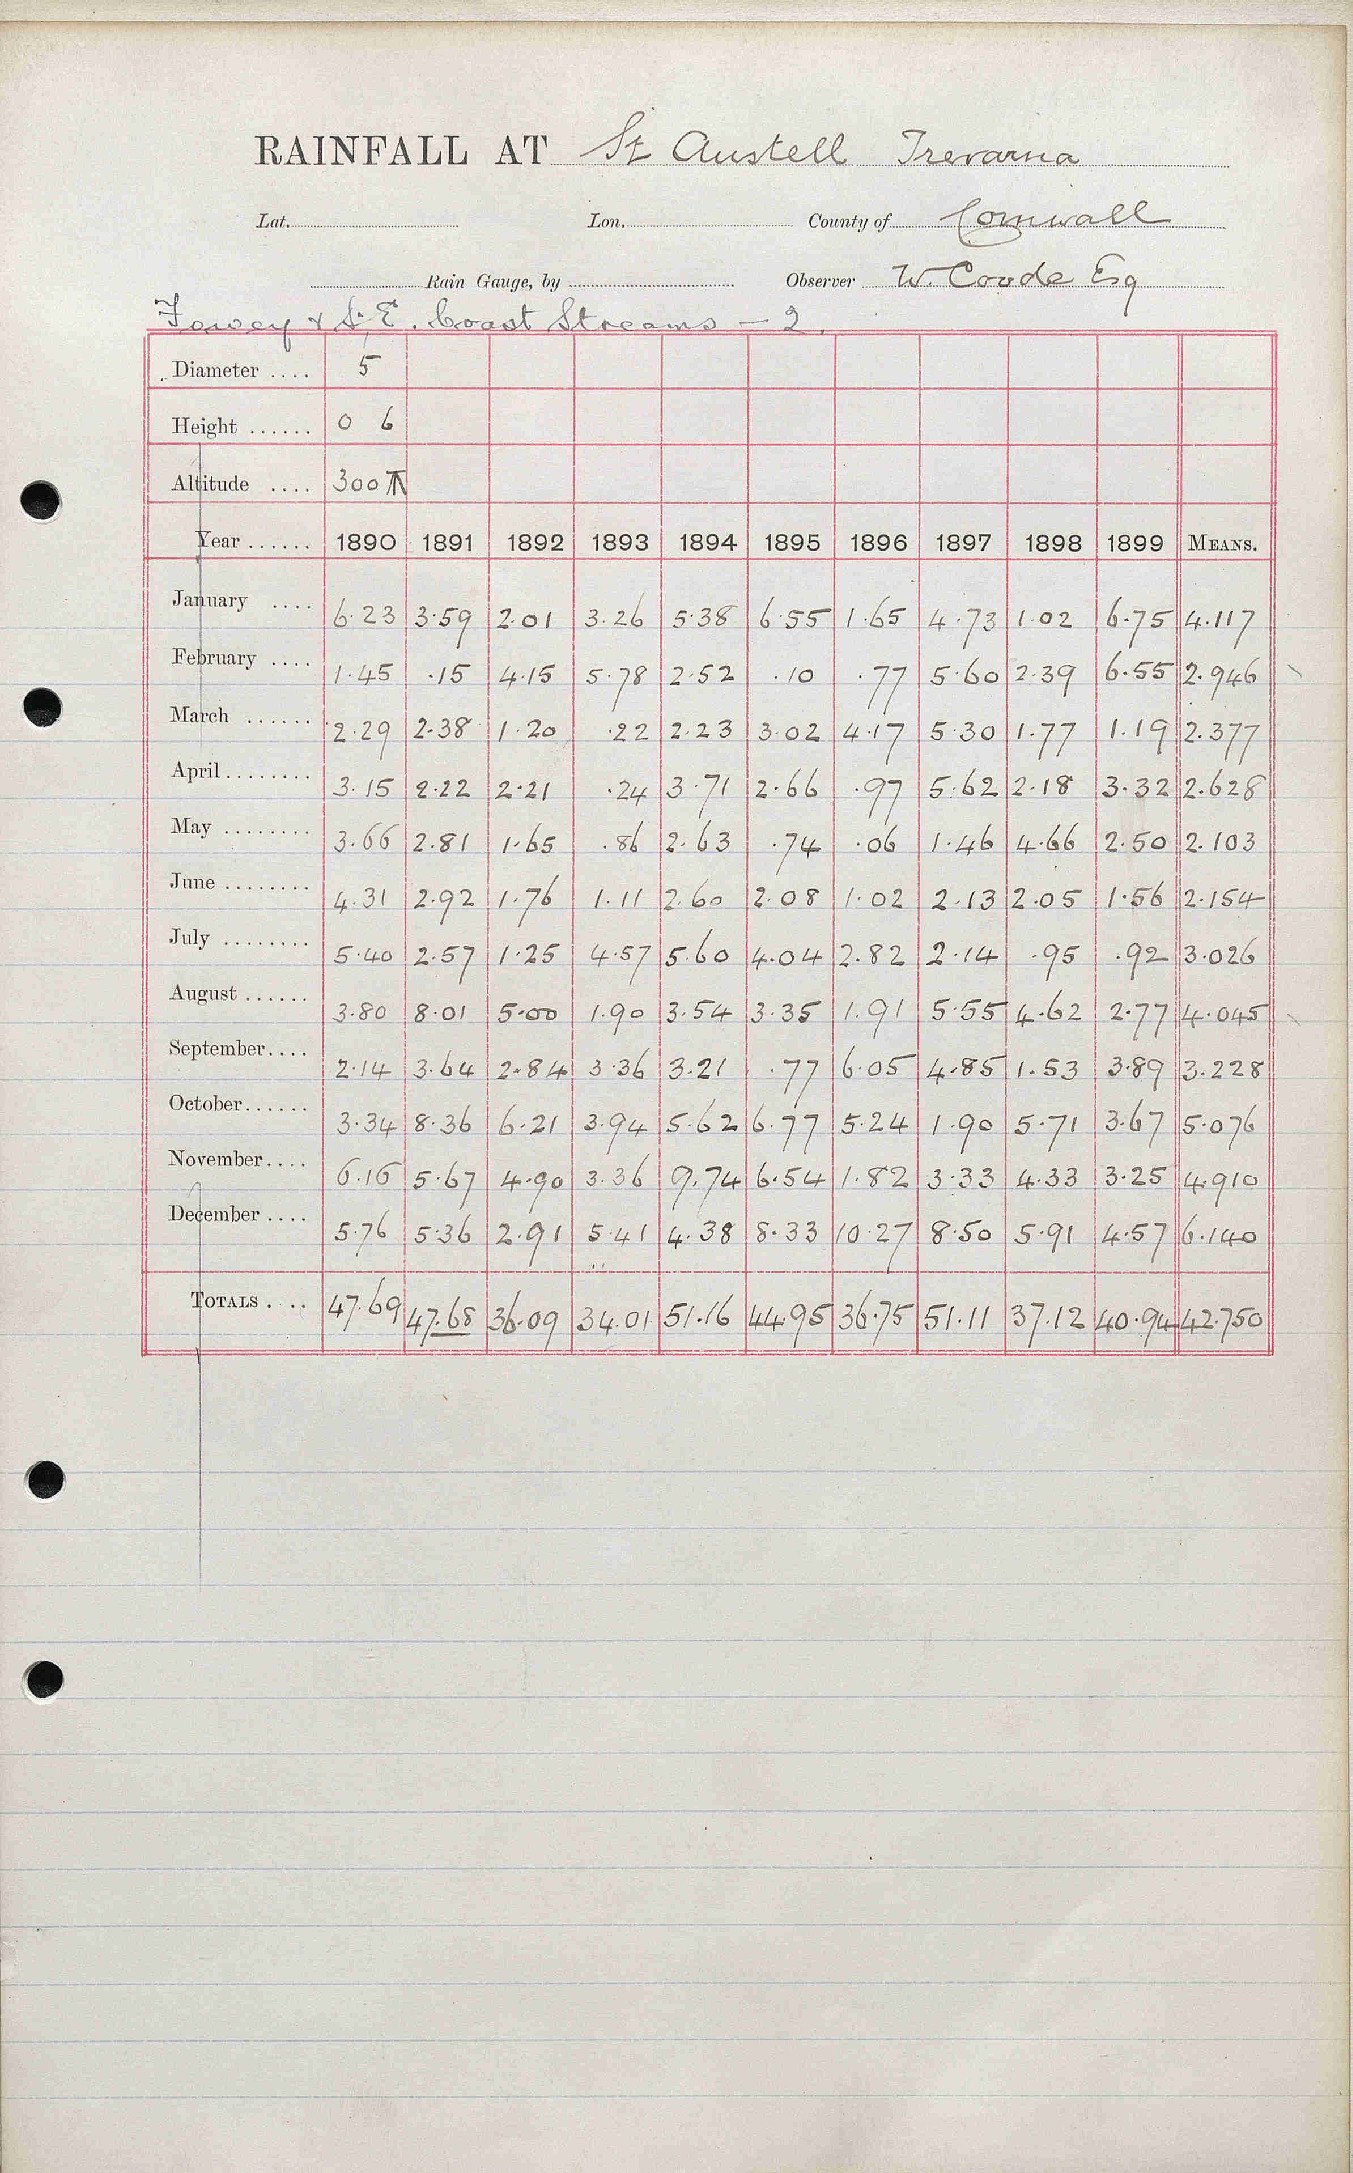 RAINFALL AT St Austell Trevarna
Lat. Lon. County of Cornwall
Rain Gauge, by Observer W. Coode Esq
Fowey & S.E. Coast Streams – 2.
Diameter .... 5
Height ...... 0 6
Altitude .... 300
Year ...... 1890 1891 1892 1893 1894 1895 1896 1897 1898 1899 MEANS.
January .... 6.23 3.59 2.01 3.26 5.38 6.55 1.65 4.73 1.02 6.75 4.117
February .... 1.45 .15 4.15 5.78 2.52 .10 .77 5.60 2.39 6.55 2.946
March ...... 2.29 2.38 1.20 .22 2.23 3.02 4.17 5.30 1.77 1.19 2.377
April ........ 3.15 2.22 2.21 .24 3.71 2.66 .97 5.62 2.18 3.32 2.628
May ........ 3.66 2.81 1.65 .86 2.63 .74 .06 1.46 4.66 2.50 2.103
June ........ 4.31 2.92 1.76 1.11 2.60 2.08 1.02 2.13 2.05 1.56 2.154
July ........ 5.40 2.57 1.25 4.57 5.60 4.04 2.82 2.14 .95 .92 3.026
August ...... 3.80 8.01 5.00 1.90 3.54 3.35 1.91 5.55 4.62 2.77 4.045
September.... 2.14 3.64 2.84 3.36 3.21 .77 6.05 4.85 1.53 3.89 3.228
October...... 3.34 8.36 6.21 3.94 5.62 6.77 5.24 1.90 5.71 3.67 5.076
November.... 6.16 5.67 4.90 3.36 9.74 6.54 1.82 3.33 4.33 3.25 4.910
December .... 5.76 5.36 2.91 5.41 4.38 8.33 10.27 8.50 5.91 4.57 6.140
TOTALS .... 47.69 47.68 36.09 34.01 51.16 44.95 36.75 51.11 37.12 40.94 42.750